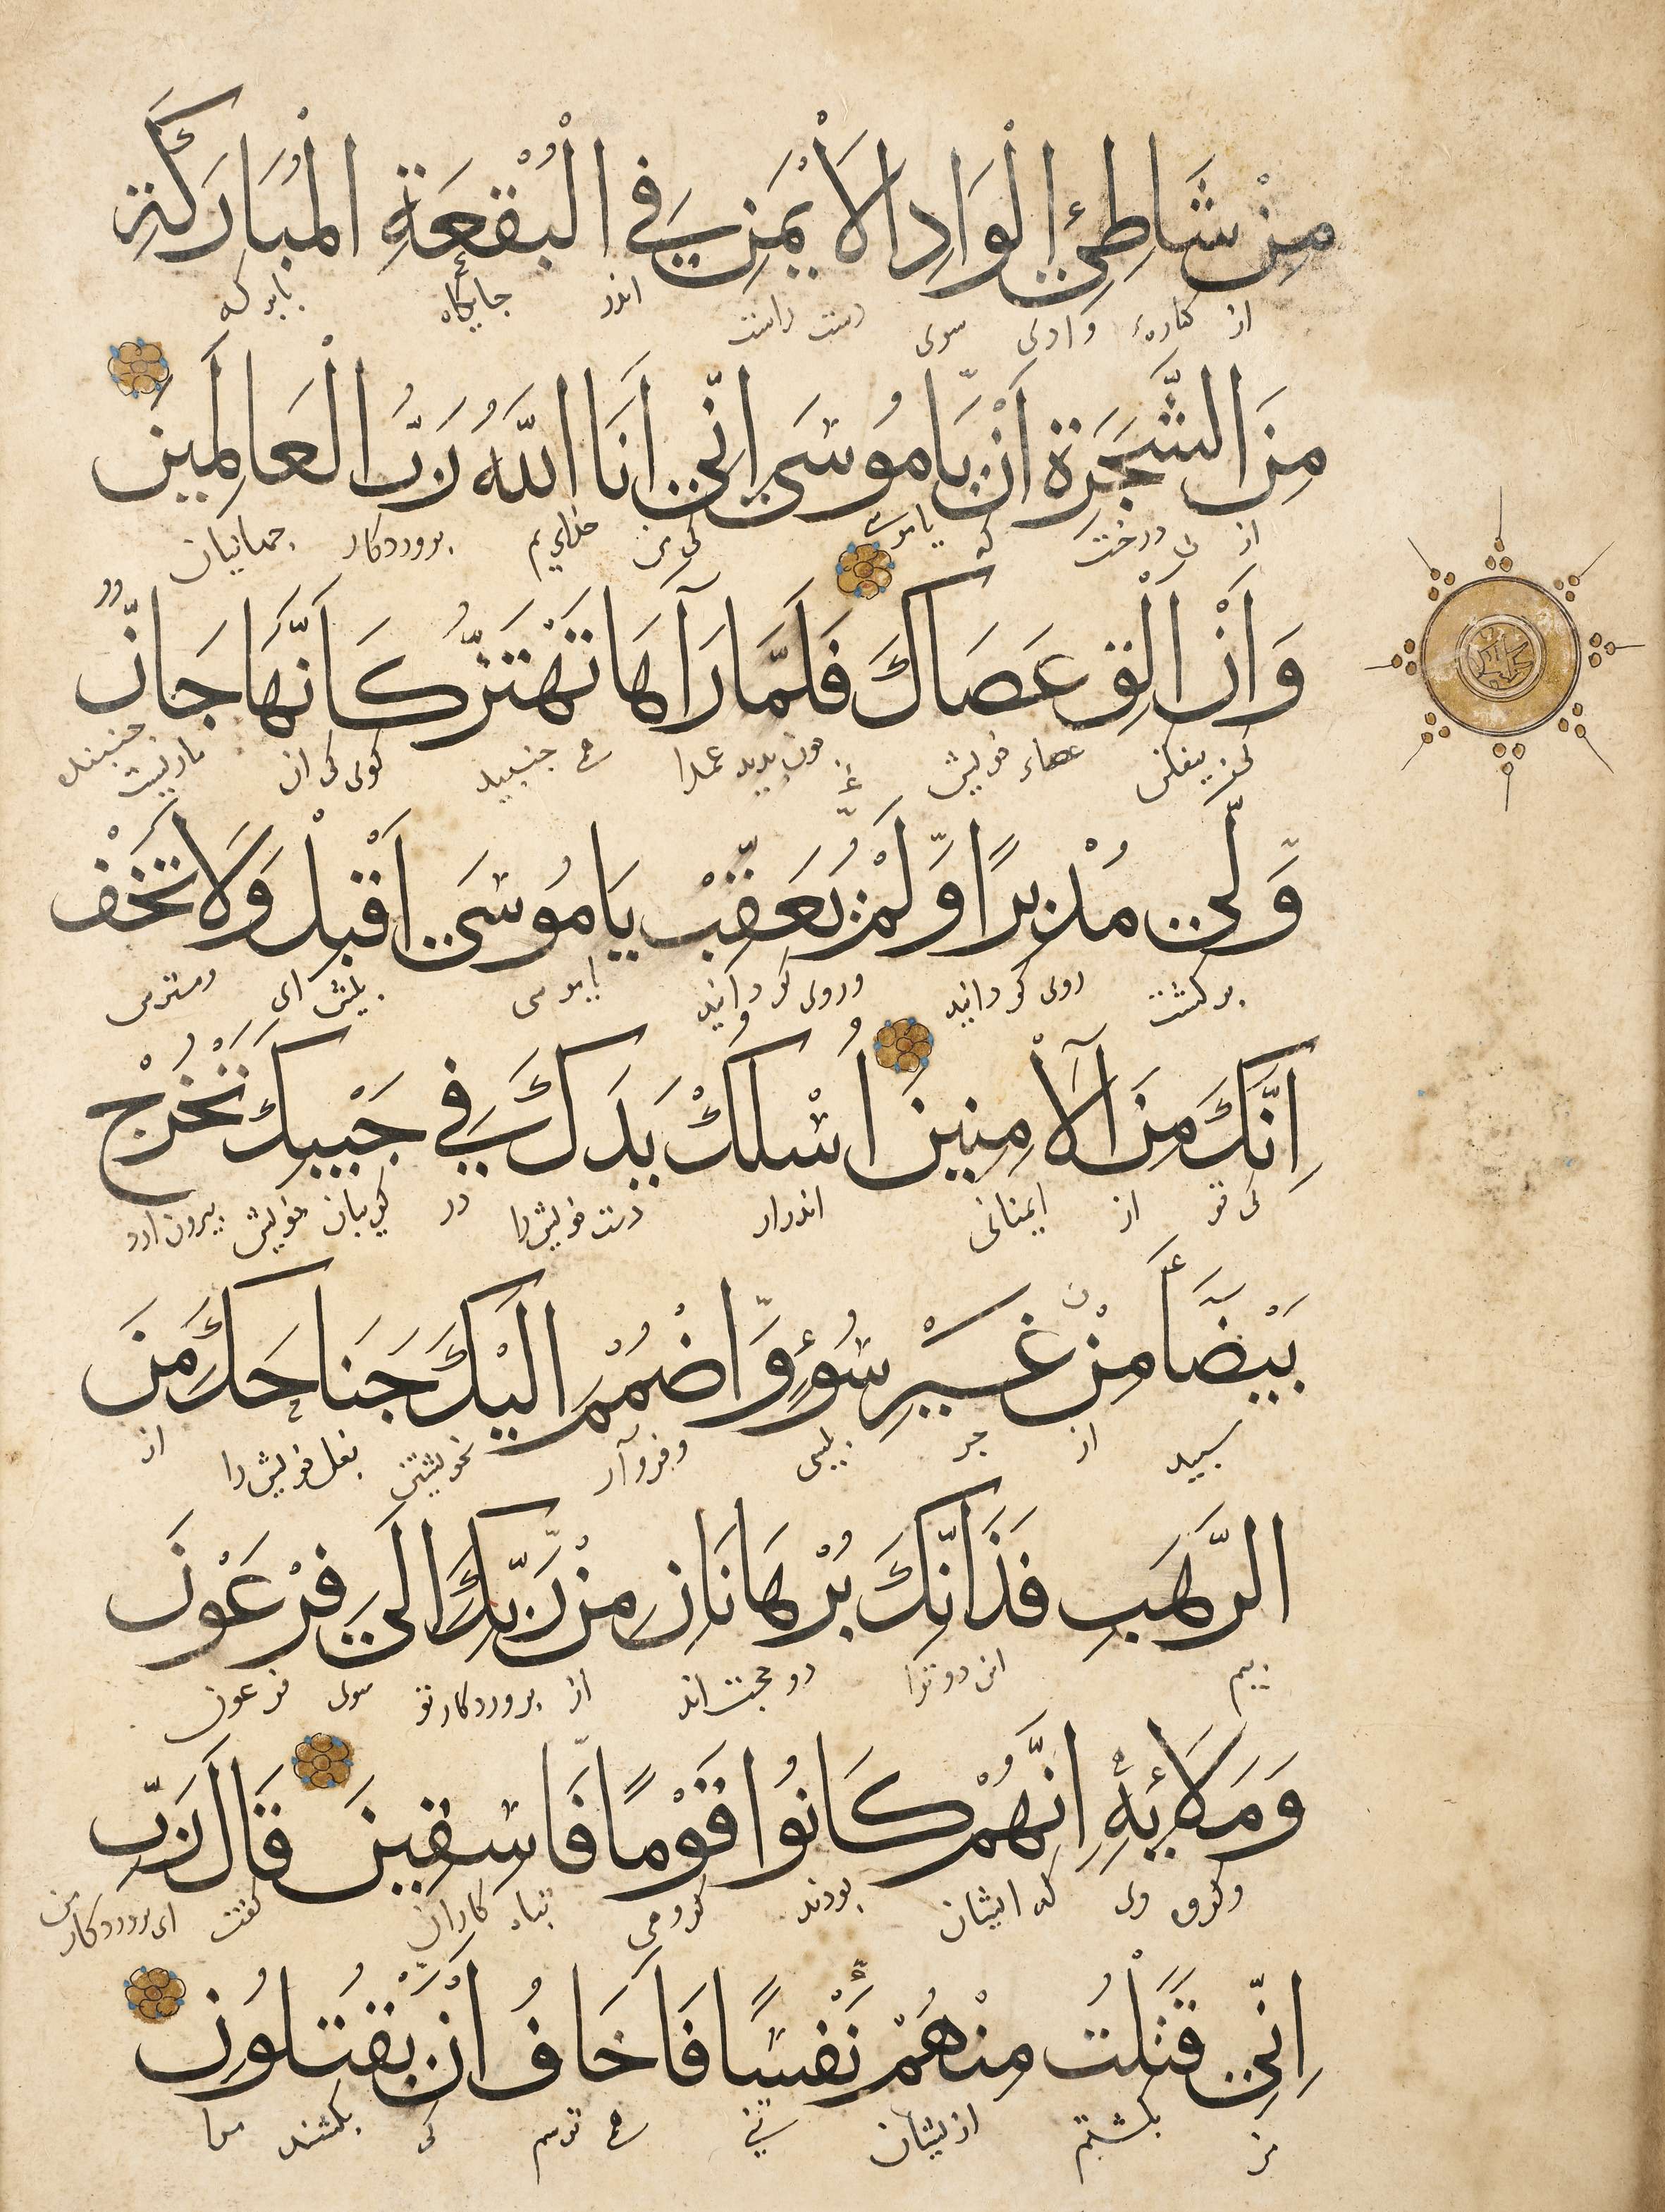 مِنْ شَاطِئِ الْوَادِ الْاَيْمَنِ فِي الْبُقْعَةِ الْمُبَارَكَةِ
از کنارهٔ وادی سوی دست راست اندر جایگاه بابرکه
مِنَ الشَّجَرَةِ اَنْ يَّامُوسَى اِنِّي اَنَا اللَّهُ رَبُّ الْعَالَمِينَ
از درخت که یا موسی کی من خدایم پروردکار جهانیان
وَاَنْ اَلْقِ عَصَاكَ فَلَمَّا رَآهَا تَهْتَزُّ كَاَنَّهَا جَانٌّ
بیفکن عصاء خویش چون بدید عصا را می جنبید کوی کی ان ماریست جنبنده
وَّلَّى مُدْبِرًا وَّلَمْ يُعَقِّبْ يَامُوسَى اَقْبِلْ وَلَا تَخَفْ
برکشت روی کردانید وروی کردانید یا موسی پیش ای ومترس
اِنَّكَ مِنَ الْآمِنِينَ اُسْلُكْ يَدَكَ فِي جَيْبِكَ تَخْرُجْ
کی تو از ایمنانی اندرار دست خویش را در کریبان خویش بیرون اید
بَيْضَاءَ مِنْ غَيْرِ سُوءٍ وَّاضْمُمْ اِلَيْكَ جَنَاحَكَ مِنَ
سپید از جز پیسی وفروآر بخویشتن بغل خویش را از
الرَّهَبِ فَذَانِّكَ بُرْهَانَانِ مِنْ رَّبِّكَ اِلَى فِرْعَوْنَ
بیم این دو ترا دو حجت اند از پروردکار تو سوی فرعون
وَمَلَائِهِ اِنَّهُمْ كَانُوا قَوْمًا فَاسِقِينَ قَالَ رَبِّ
وکروه وی که ایشان بودند کروهی تباه کاران کفت ای پروردکار من
اِنِّي قَتَلْتُ مِنْهُمْ نَفْسًا فَاَخَافُ اَنْ يَّقْتُلُونِ
من بکشتم از یشان تنی می ترسم کی بکشند مرا